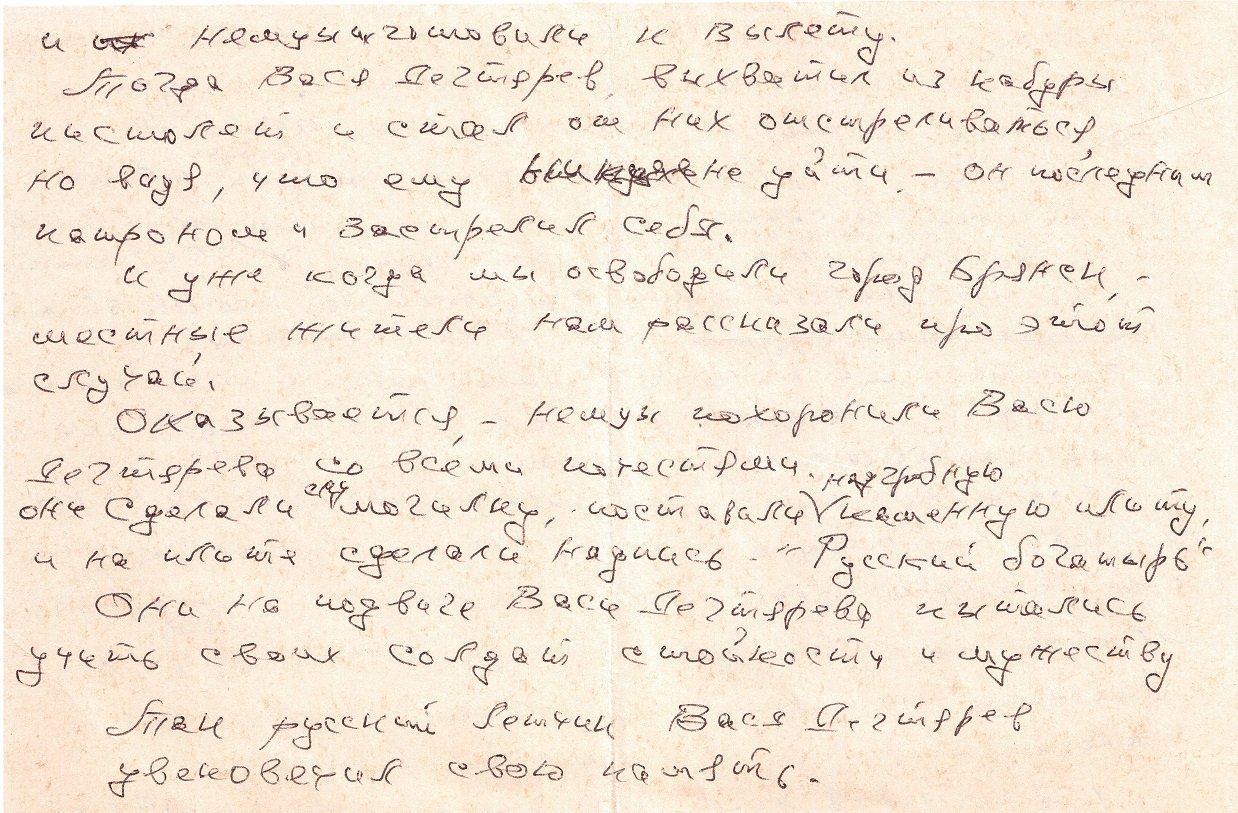 и немцы изготовили к вылету.
Тогда Вася Дегтярев, выхватил из кабуры
пистолет и стал от них отстреливаться,
но видя, что ему не уйти, – он последним
патроном и застрелил себя.
И уже когда мы освободили город Брянск, –
местные жители нам рассказали про этот
случай.
Оказывается, – немцы похоронили Васю
Дегтярева со всеми почестями.
они сделали ему могилку, поставили надгробную каменную плиту,
и на плите сделали надпись – "Русский богатырь"
Они на подвиге Васи Дегтярева пытались
учить своих солдат стойкости и мужеству
Так русский летчик Вася Дегтярев
увековечил свою память.